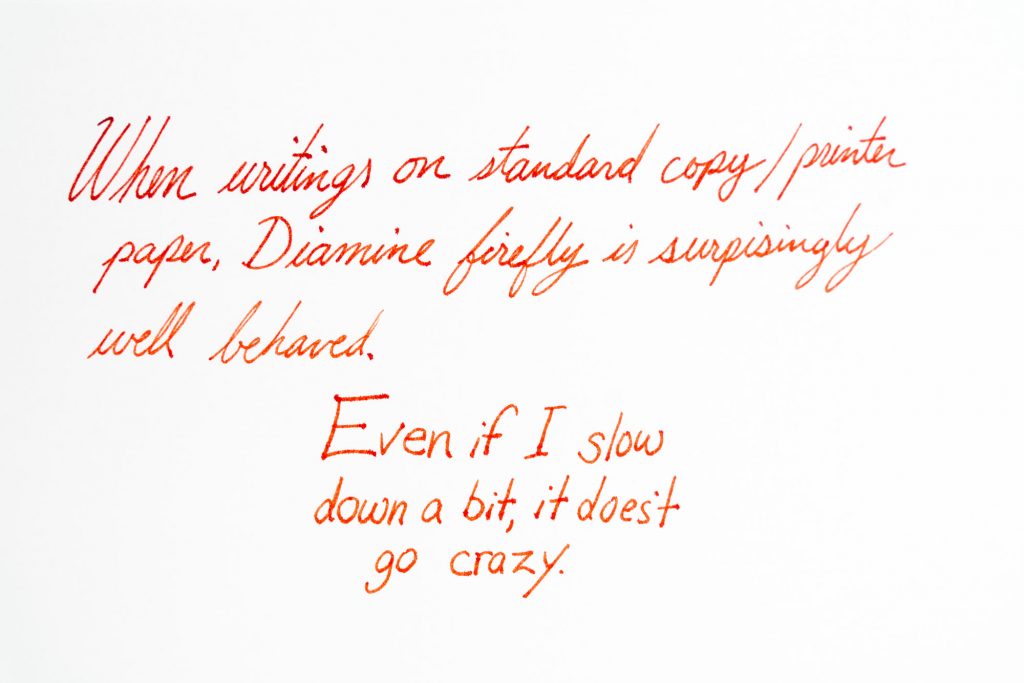 When writings on standard copy/printer
paper, Diamine firefly is surpisingly
well behaved.
Even if I slow
down a bit, it does't
go crazy.